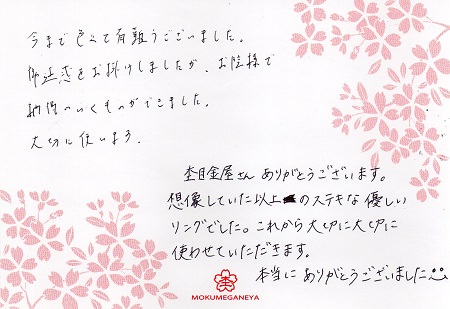 今まで色々と有難うございました。
御迷惑をお掛けしましたが、お陰様で
納得のいくものができました。
大切に使います。
杢目金屋さん ありがとうございます。
想像していた以上のステキな優しい
リングでした。これから大切に大切に
使わせていただきます。
本当にありがとうございました
MOKUMEGANEYA